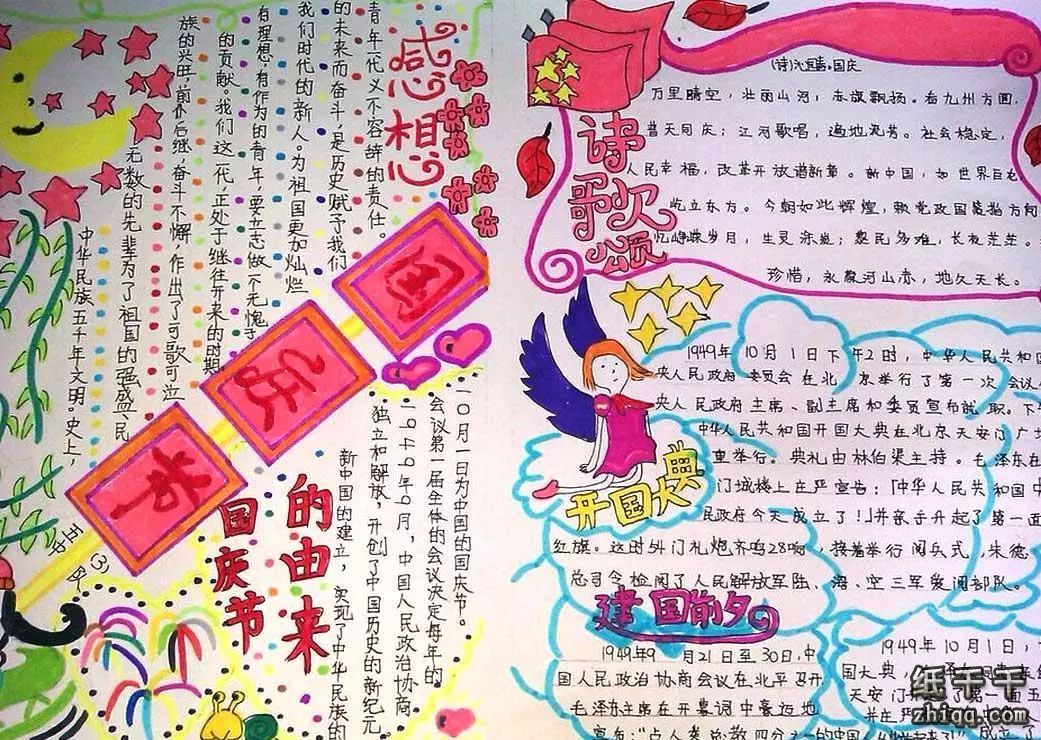 感想
青年一代义不容辞的责任。
的未来而奋斗，是历史赋予我们
我们时代的新人。为祖国更加灿烂
有理想，有作为的青年，要立志做一个无愧于
的贡献。我们这一代，正处于继往开来的时期
族的兴旺，前仆后继，奋斗不懈，作出了可歌可泣
无数的先辈为了祖国的强盛，民
中华民族五千年文明。史上，
五(3)
中队
国庆节
的由来
十月一日为中国的国庆节。
会议第一届全体的会议决定每年的
一九四九年九月，中国人民政治协商
独立和解放，开创了中国历史的新纪元。
新中国的建立，实现了中华民族的
诗歌颂
国庆
万里晴空，壮丽山河，赤旗飘扬。看九州方圆，
普天同庆；江河歌唱，遍地流芳。社会稳定，
人民幸福，改革开放谱新章。新中国，如世界巨龙
屹立东方。今朝如此辉煌，赖党政国策指方向
忆峥嵘岁月，生灵涂炭；黎民多难，长夜茫茫。
珍惜，永葆河山赤，地久天长。
开国大典
1949年10月1日下午2时，中华人民共和国
央人民政府委员会在北京举行了第一次会议
央人民政府主席、副主席和委员宣布就职。下午
中华人民共和国开国大典在北京天安门广场
重举行。典礼由林伯渠主持。毛泽东在
门城楼上庄严宣告：「中华人民共和国中
民政府今天成立了！」并亲手升起了第一面
红旗。这时外门礼炮齐鸣28响，接着举行阅兵式，朱德
总司令检阅了人民解放军陆、海、空三军受阅部队。
建国前夕
1949年9月21日至30日，中
国人民政治协商会议在北平召开
毛泽东主席在开幕词中豪迈地
宣布："占人类总数四分之一的中国人
1949年10月1日，
国大典，
天安门
纸手千
zhiqq.com